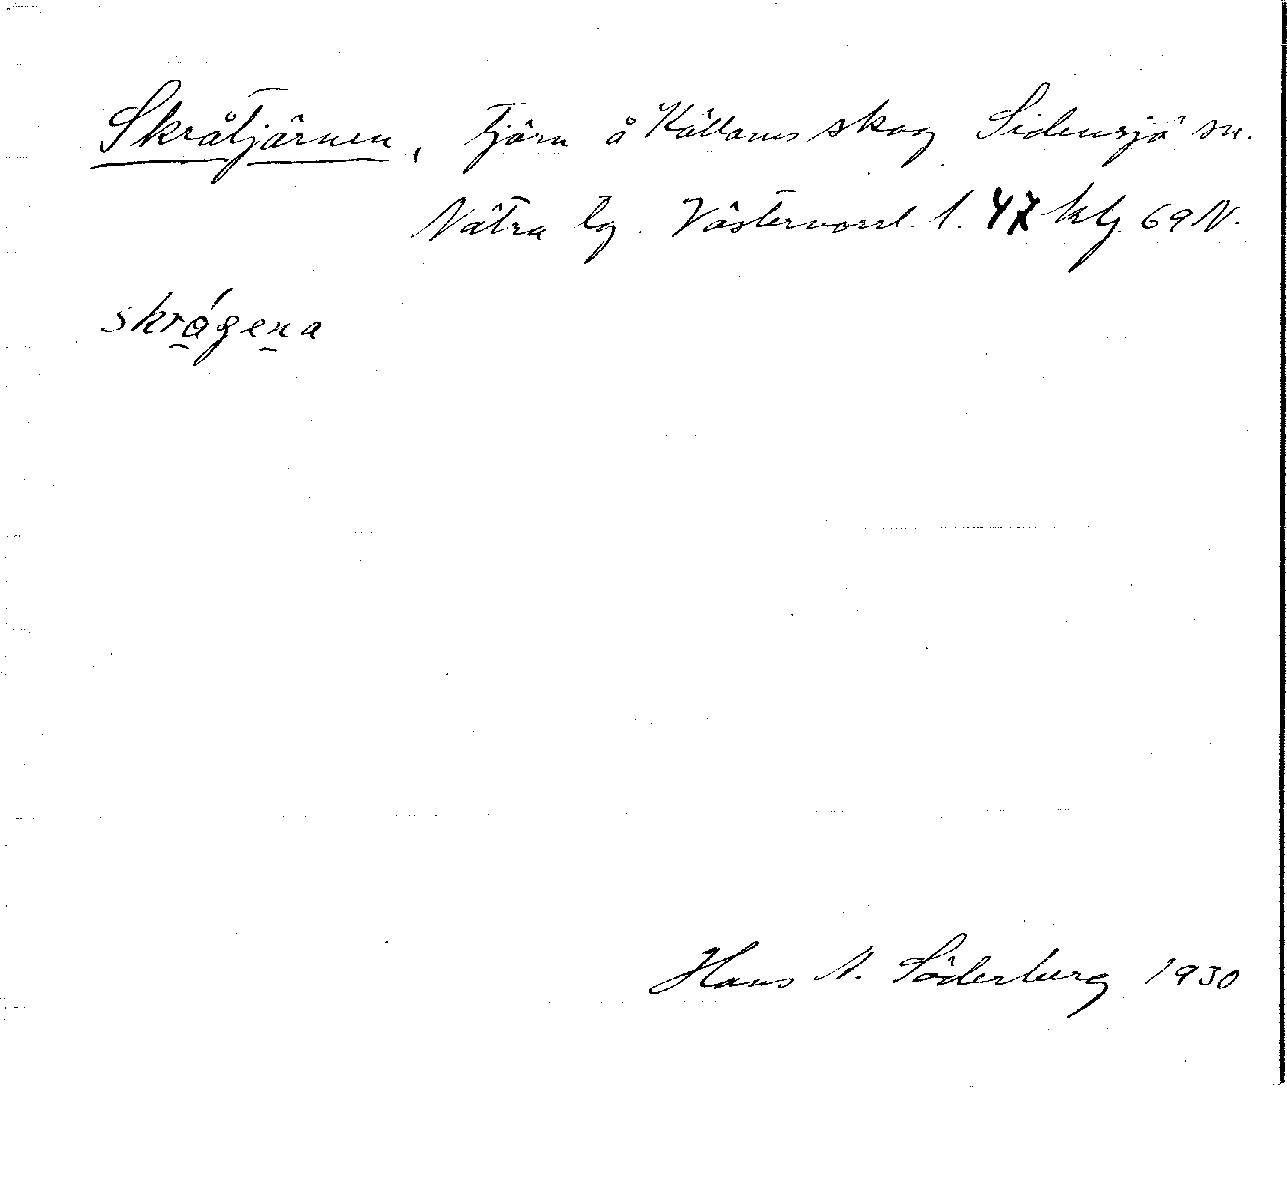 Skråtjärnen, tjärn å Källoms skog Sidensjö sn.
Nätra tg. Västernorrl. l. 47 klg 69 N.
skrågena
Hans N. Söderberg 1930